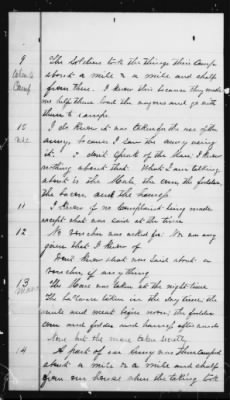 9 The Soldiers took the things their Camp
where to about a mile & a mile and half
Camp from there. I know this because they made
me help them load the wagons and go with
them to camp.
10 I do know it was taken for the use of the
Use army, because I saw the army using
it. I don't speak of the Mare. I know
nothing about that. What I am talking
about is the Mule, the corn, the fodder,
the bacon and the harness.
11 I know of no Complaint being made
except what was said at the time
12 No voucher was asked for. No nor any
given that I know of
Don't know what was said about a
voucher if anything
13 The Mare was taken at the night time
The balance taken in the day time, the
mule and meat before noon; the fodder
corn and fodder and harness afterwards
None but the mare taken secretly
14 A part of our Army was then camped
about a mile & a mile and half
from our house when the taking took